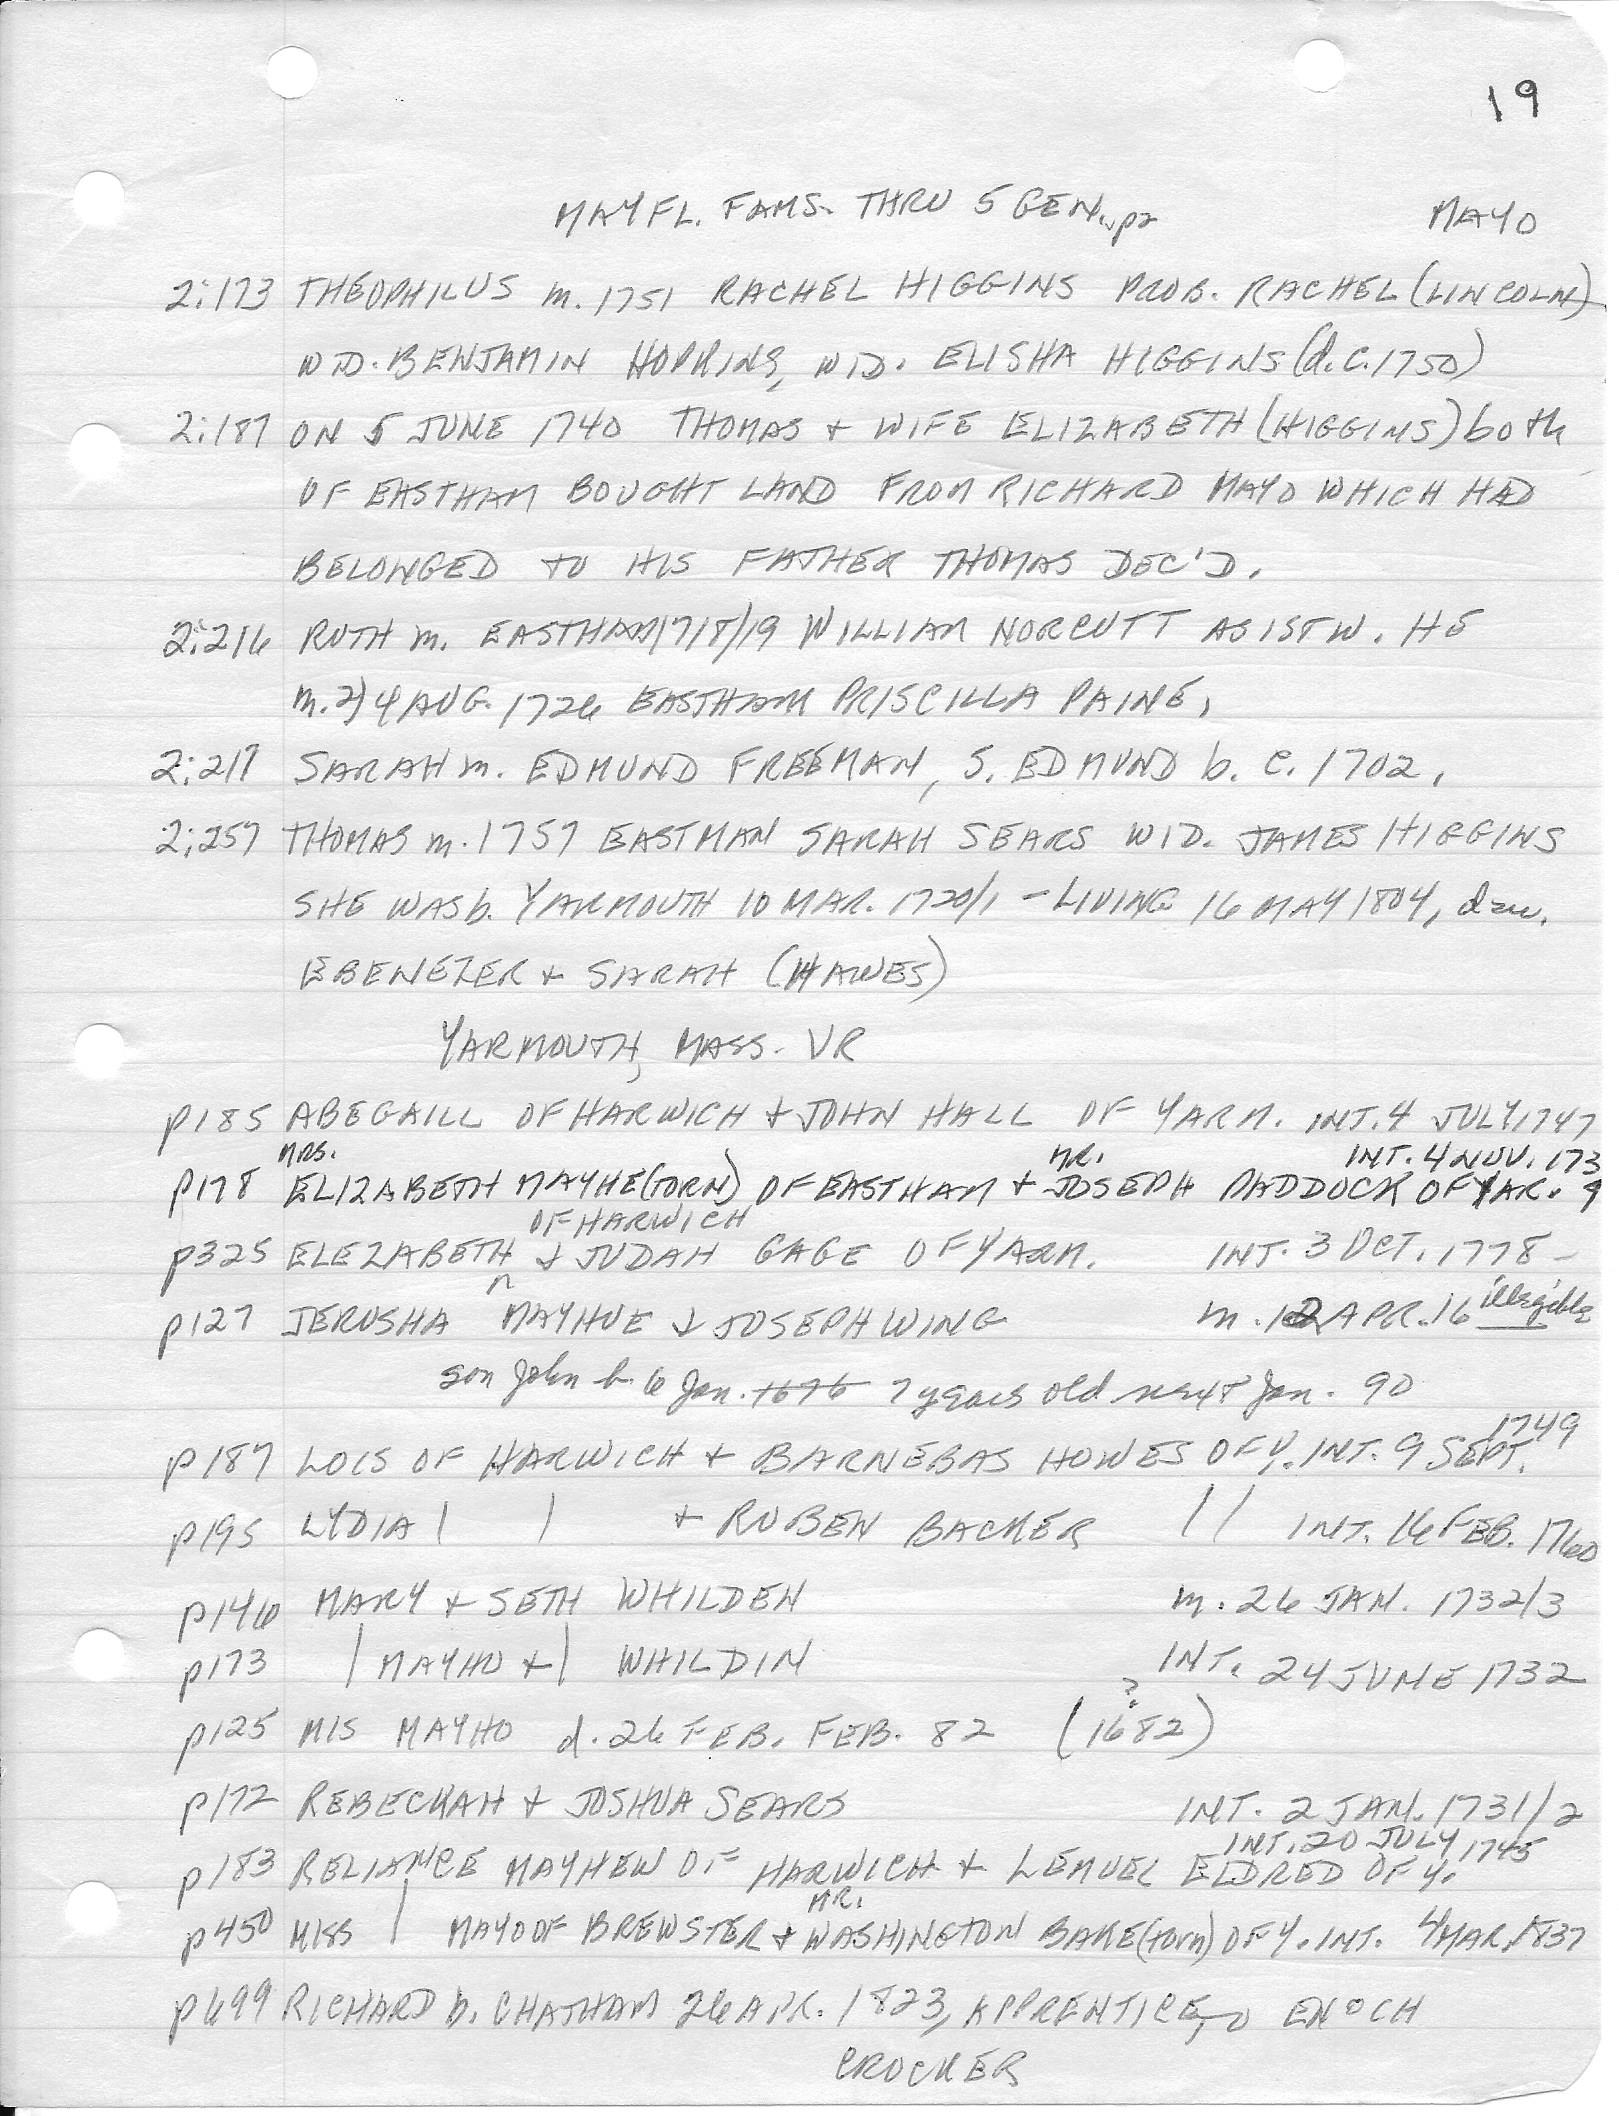 19
MAYFL. FAMS. THRU 5 GEN. MAYO
2:173 THEOPHILUS m. 1751 RACHEL HIGGINS PROB. RACHEL (LINCOLN)
WID. BENJAMIN HOPKINS, WID. ELISHA HIGGINS (d.c.1750)
2:187 ON 5 JUNE 1740 THOMAS + WIFE ELIZABETH (HIGGINS) both
OF EASTHAM BOUGHT LAND FROM RICHARD MAYO WHICH HAD
BELONGED TO HIS FATHER THOMAS DEC'D.
2:216 RUTH m. EASTHAM 1718/19 WILLIAM NORCUTT AS 1ST W. HE
m. 2) 4 AUG. 1726 EASTHAM PRISCILLA PAINE.
2:217 SARAH m. EDMUND FREEMAN, S. EDMUND b. c. 1702.
2:257 THOMAS m. 1757 EASTMAN SARAH SEARS WID. JAMES HIGGINS
SHE WAS b. YARMOUTH 10 MAR. 1720/1 - LIVING 16 MAY 1804, dau.
EBENEZER + SARAH (HAWES)
YARMOUTH, MASS. VR
p185 ABEGAILL OF HARWICH + JOHN HALL OF YARM. INT. 4 JULY 1747
MRS. MR. INT. 4 NOV. 173
p178 ELIZABETH MAYHE(TORN) OF EASTHAM + JOSEPH PADDOCK OF YAR. 9
OF HARWICH
p325 ELEZABETH + JUDAH GAGE OF YARM. INT. 3 OCT. 1778 -
p127 JERUSHA MAYHUE + JOSEPH WING m. 12 APR. 16 illegible
son John b. 6 Jan. 1676 7 years old next Jan. 90
1749
p187 LOIS OF HARWICH + BARNEBAS HOWES OF Y. INT. 9 SEPT.
p195 LYDIA | | + RUBEN BACKER | | INT. 16 FEB. 1760
p146 MARY + SETH WHILDEN m. 26 JAN. 1732/3
p173 | MAYHO + | WHILDIN INT. 24 JUNE 1732
?
p125 MIS MAYHO d. 26 FEB. FEB. 82 (1682)
p172 REBECKAH + JOSHUA SEARS INT. 2 JAN. 1731/2
INT. 20 JULY 1745
p183 RELIANCE MAYHEW OF HARWICH + LEMUEL ELDRED OF Y.
MR.
p450 MISS | MAYO OF BREWSTER + WASHINGTON BAKE(torn) OF Y. INT. 4 MAR. 1837
p699 RICHARD b. CHATHAM 26 APR. 1823, APPRENTICE TO ENOCH
CROCKER